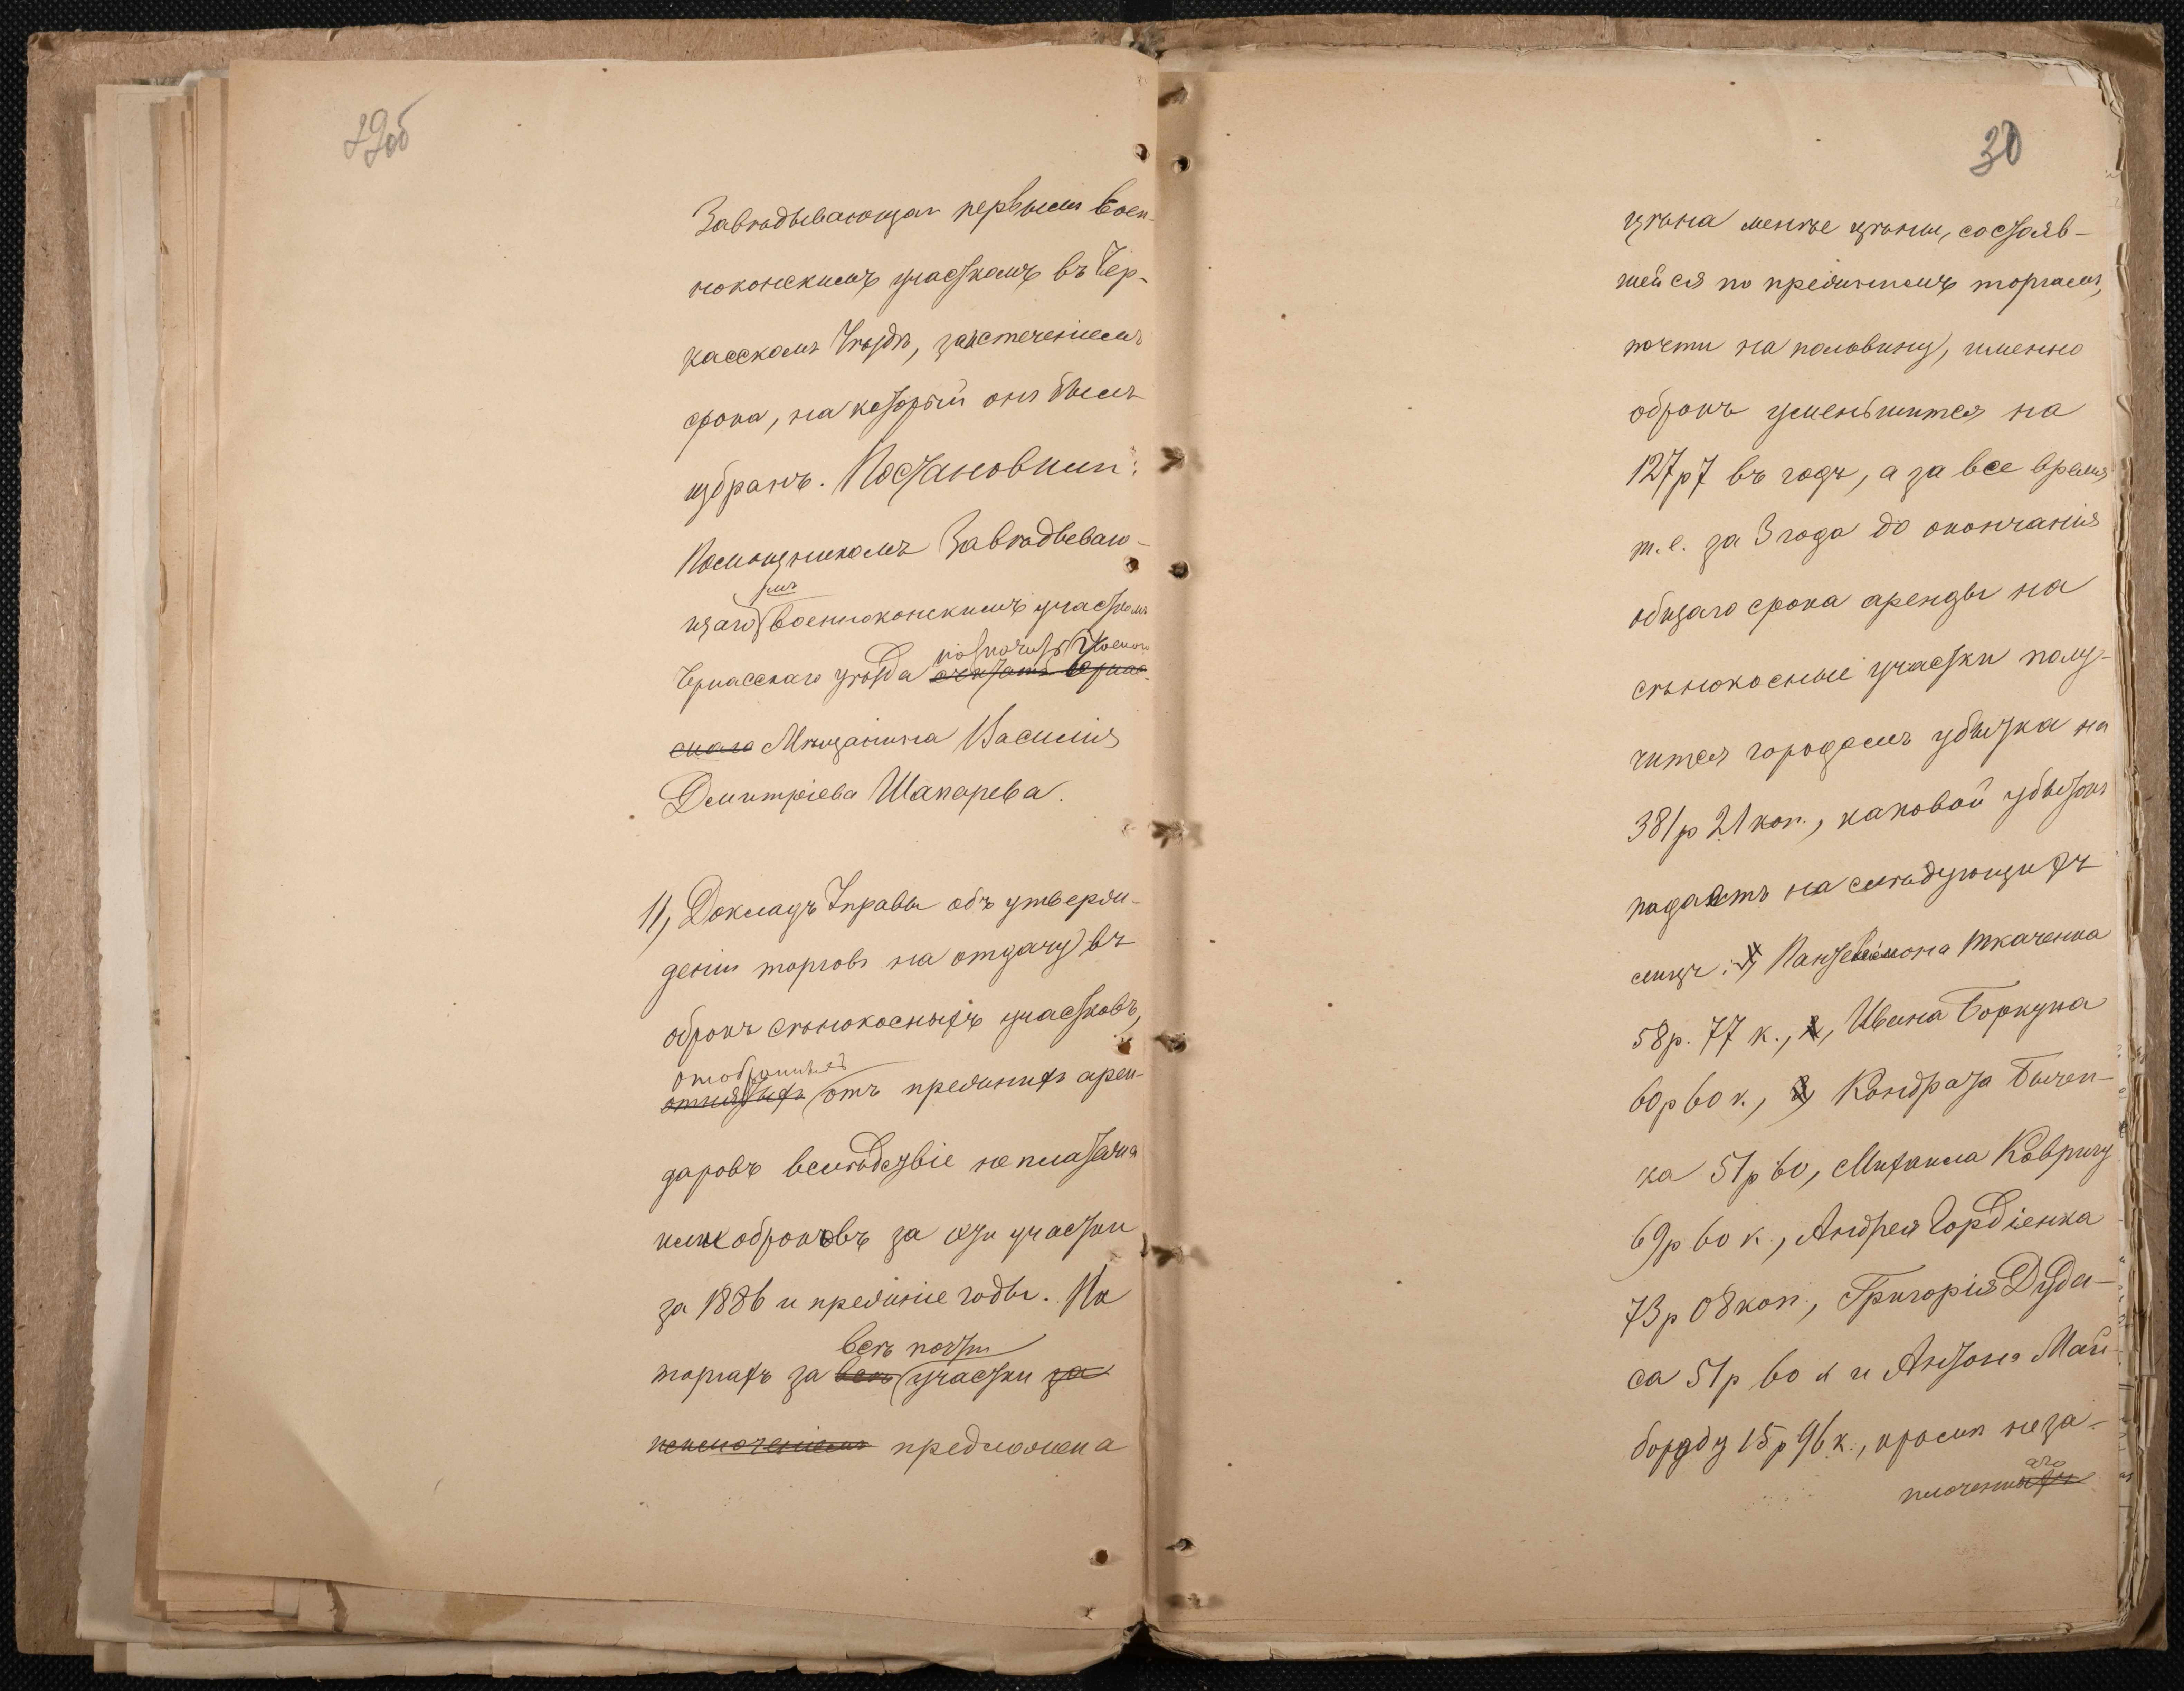 29об
Завѣдывающаго первымъ Воен-
ноконскимъ участкомъ въ Чер-
касскомъ Уѣздѣ, за истеченіемъ
срока, на который онъ былъ
избранъ. Постановили:
Помощникомъ Завѣдываю-
щаго 1мъ военноконскимъ участкомъ
Черкасскаго уѣзда
скаго Мѣщанина Василія
Дмитріева Шапарева.
11, Докладъ Управы объ утверж-
деніи торговъ на отдачу въ
оброкъ сѣнокосныхъ участковъ,
отобранныхъ
отнятыхъ отъ прежнихъ арен-
даровъ вслѣдствіе неплатежа
ими оброковъ за эти участки
за 1886 и прежніе годы. На
всѣ почти
торгахъ за всѣ участки за
исключеніемъ предложена
30
цѣна менѣе цѣны, состояв-
шейся по прежнимъ торгамъ,
почти на половину, именно
оброкъ уменьшится на
127р7 въ годъ, а за все время
т. е. за 3 года до окончанія
общаго срока аренды на
сѣнокосные участки полу-
чится городомъ убытка на
381р 21 коп., каковой убытокъ
падаетъ на слѣдующихъ
лицъ: 1, Пантелимона Ткаченка
58р. 77 к., 2, Ивана Боркуна
60р 60 к., 3, Кондрата Бычен-
ка 51р 60, Михаила Ковригу
69р 60 к., Андрея Гордіенка
73р 08 коп., Григорія Дуда-
са 51р 60 к и Антона Май-
бороду 15р 96 к., кромѣ неза-
аго
плоченныхъ